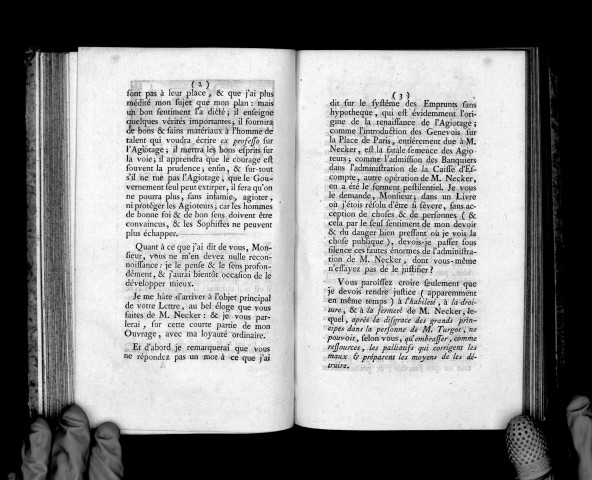 ( 2 )
sont pas à leur place, & que j'ai plus
médité mon sujet que mon plan : mais
un bon sentiment l'a dicté ; il enseigne
quelques vérités importantes ; il fournira
de bons & sains matériaux à l'homme de
talent qui voudra écrire ex professo sur
l'Agiotage ; il mettra les bons esprits sur
la voie ; il apprendra que le courage est
souvent la prudence ; enfin, & sur-tout
s'il ne tue pas l'Agiotage, que le Gou-
vernement seul peut extirper, il fera qu'on
ne pourra plus, sans infamie, agioter,
ni protéger les Agioteurs ; car les hommes
de bonne foi & de bon sens doivent être
convaincus, & les Sophistes ne peuvent
plus échapper.
Quant à ce que j'ai dit de vous, Mon-
sieur, vous ne m'en devez nulle recon-
noissance : je le pense & le sens profon-
dément, & j'aurai bientôt occasion de le
développer mieux.
Je me hâte d'arriver à l'objet principal
de votre Lettre, au bel éloge que vous
faites de M. Necker : & je vous par-
lerai, sur cette courte partie de mon
Ouvrage, avec ma loyauté ordinaire.
Et d'abord je remarquerai que vous
ne répondez pas un mot à ce que j'ai
( 3 )
dit sur le systême des Emprunts sans
hypotheque, qui est évidemment l'ori-
gine de la renaissance de l'Agiotage ;
comme l'introduction des Genevois sur
la Place de Paris, entiérement due à M.
Necker, est la fatale semence des Agio-
teurs ; comme l'admission des Banquiers
dans l'administration de la Caisse d'Es-
compte, autre opération de M. Necker,
en a été le ferment pestilentiel. Je vous
le demande, Monsieur ; dans un Livre
où j'étois résolu d'être si sévere, sans ac-
ception de choses & de personnes ( &
cela par le seul sentiment de mon devoir
& du danger bien pressant où je vois la
chose publique ), devois-je passer sous
silence ces fautes énormes de l'administra-
tion de M. Necker, dont vous-même
n'essayez pas de le justifier ?
Vous paroissez croire seulement que
je devois rendre justice ( apparemment
en même temps ) à l'habileté, à la droi-
ture, & à la fermeté de M. Necker, le-
quel, après la disgrace des grands prin-
cipes dans la personne de M. Turgot, ne
pouvoit, selon vous, qu'embrasser, comme
ressources, les palliatifs qui corrigent les
maux & préparent les moyens de les dé-
truire.